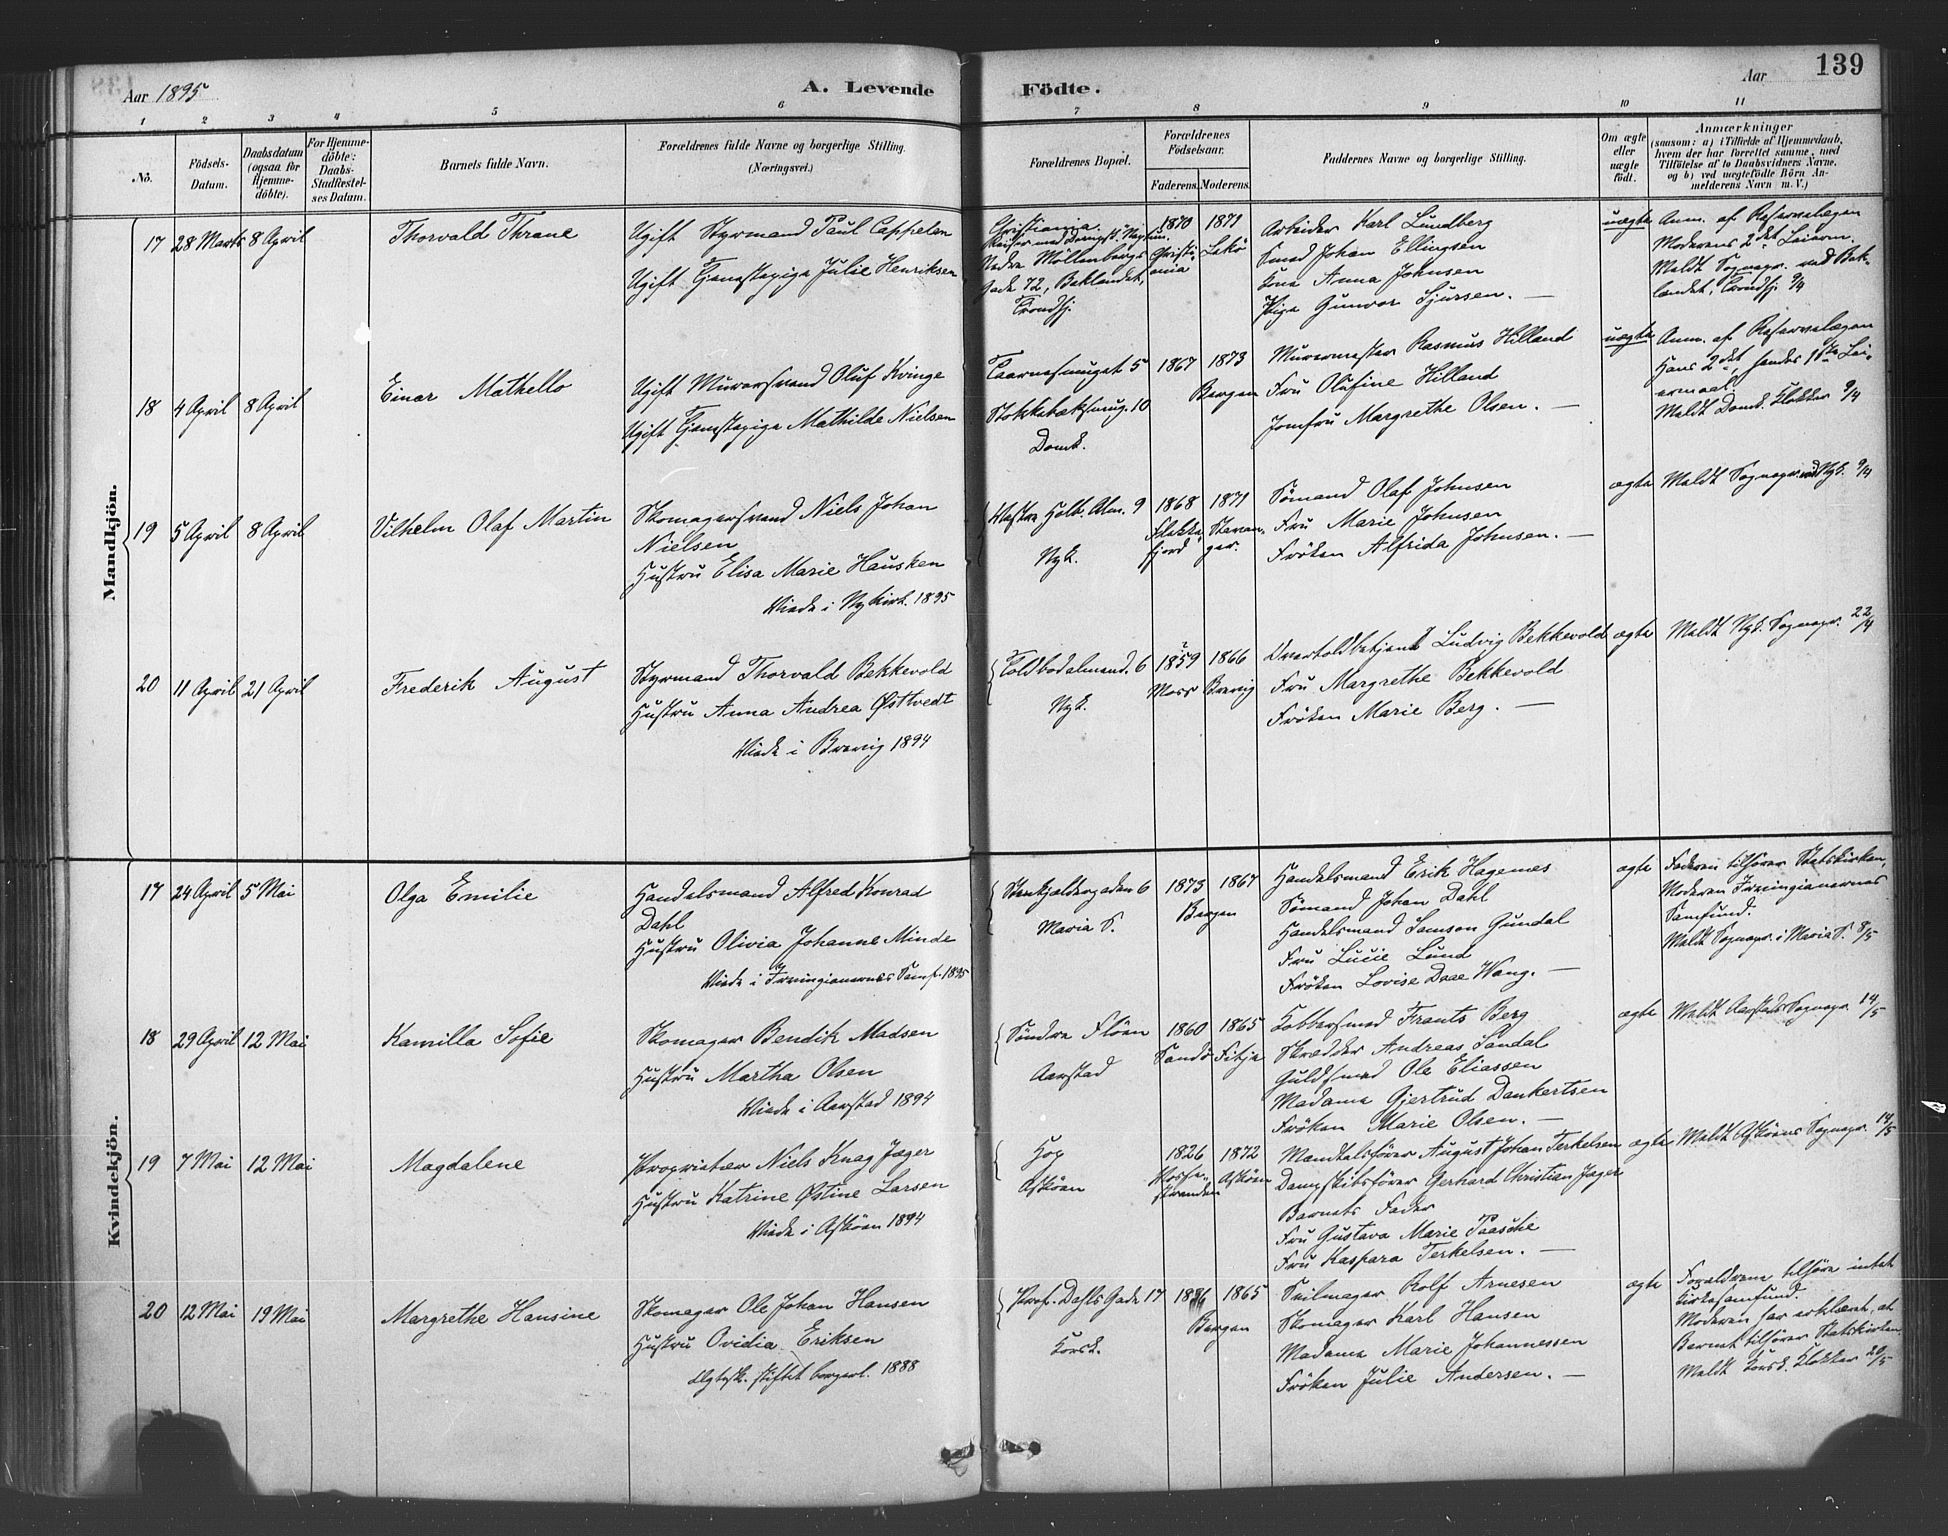 Aar 1895
A. Levende
Födte.
Aar
139
1 2 3 4 5 6 7 8 9 10 11
No.
Födsels-Datum.
Daabsdatum (ogsaa for Hjemme-döbte).
For Hjemme-döbte: Daabs-Stadfæstel-ses Datum.
Barnets fulde Navn.
Forældrenes fulde Navne og borgerlige Stilling.
(Næringsvei.)
Forældrenes Bopæl.
Forældrenes Födselsaar.
Faderens. Moderens.
Faddernes Navne og borgerlige Stilling.
Om ægte eller uægte födt.
Anmærkninger
(saasom: a) i Tilfælde af Hjemmedaab,
hvem der har forrettet samme, med
Tilföielse af to Daabsvidners Navne,
og b) ved uægtefödte Börn An-
melderens Navn m. V.)
Mandkjön.
17 28 Marts 8 April
Thorvald Thrane
Ugift Styrmand Paul Cappelen
Ugift Tjenestepige Julie Henriksen
Christiania.
Nedre Möllenbergs
Gade 72, Baklandet,
Trondhj.
1870 Christiania
1871 Lekö
Arbeider Karl Lundberg
Smed Johan Ellingsen
Kone Anna Johnsen
Pige Gunvor Sjursen. —
uægte
Anm. af Reservelægen
Moderens 2det Leierm.
Meldt Sognepr. ved Bak-
landet, Trondhj. 9/4
18 4 April 8 April
Einar Mathello
Ugift Murersvend Oluf Kvinge
Ugift Tjenestepige Mathilde Nielsen
Taarnesmuget 5
Stokkebæksmug. 10
Domk.
1867 1873
Bergen
Murermester Rasmus Hilland
Fru Olufine Hilland
Jomfru Margrethe Olsen. —
uægte
Anm. af Reservelægen
Hans 2det, hendes 1ste Lei-
ermaal.
Meldt Domk. Klokker 9/4
19 5 April 8 April
Vilhelm Olaf Martin
Skomagersvend Niels Johan
Nielsen
Hustru Elisa Marie Hausken
Viede i Nykirk. 1895
Vestre Holb. Alm. 9
Nyk.
1868 Flekke-fjord
1871 Stavan-ger.
Sömand Olaf Johnsen
Fru Marie Johnsen
Fröken Alfrida Johnsen. —
ægte
Meldt Sognepr. ved Nyk. 9/4
20 11 April 21 April
Frederik August
Styrmand Thorvald Bekkevold
Hustru Anna Andrea Østvedt
Viede i Brevig 1894
Toldbodalmend. 6
Nyk.
1859 Moss
1866 Brevig
Overtoldbetjent Ludvig Bekkevold
Fru Margrethe Bekkevold
Fröken Marie Berg. —
ægte
Meldt Nyk. Sognepr. 22/4
Kvindekjön.
17 24 April 5 Mai
Olga Emilie
Handelsmand Alfred Konrad
Dahl
Hustru Olivia Johanne Minde
Viede i Irvingianernes Samf. 1895
Stenkjeldergaden 6
Maria S.
1873 1867
Bergen
Handelsmand Erik Hagenes
Sömand Johan Dahl
Handelsmand Samson Gundal
Fru Lucie Lund
Fröken Lovise Daae Wang. —
ægte
Faderen tilhører Statskirken,
Moderen Irvingianernes
Samfund.
Meldt Sognepr. i Maria S. 8/5
18 29 April 12 Mai
Kamilla Sofie
Skomager Bendik Madsen
Hustru Martha Olsen
Viede i Aarstad 1894
Söndre Flöen
Aarstad
1860 Sandö
1865 Fitje
Kobbersmed Frants Berg
Skrædder Andreas Sandal
Guldsmed Ole Eliassen
Madame Gjertrud Dankertsen
Fröken Marie Olsen. —
ægte
Meldt Aarstads Sognepr. 14/5
19 7 Mai 12 Mai
Magdalene
Proprietær Niels Knag Jæger
Hustru Katrine Østine Larsen
Viede i Asköen 1894
Hop
Asköen
1826
1872 Asköen
Mandtalsfører August Johan Terkelsen
Dampskibsfører Gerhard Christian Jæger
Barnets Fader
Fru Gustava Marie Paasche
Fru Kaspara Terkelsen. —
ægte
Meldt Asköens Sognepr. 14/5
20 12 Mai 19 Mai
Margrethe Hansine
Skomager Ole Johan Hansen
Hustru Ovidia Eriksen
Ægtesk. stiftet borgerl. 1888
Prof. Dahls Gade 17
Korsk.
1865
Bergen
Seilmager Rolf Arnesen
Skomager Karl Hansen
Madame Marie Johannessen
Fröken Julie Andersen. —
ægte
Forældrene tilhøre intet
Kirkesamfund.
Moderen har erklæret, at
Barnet tilhører Statskirken
Meldt Korsk. Klokker 20/5